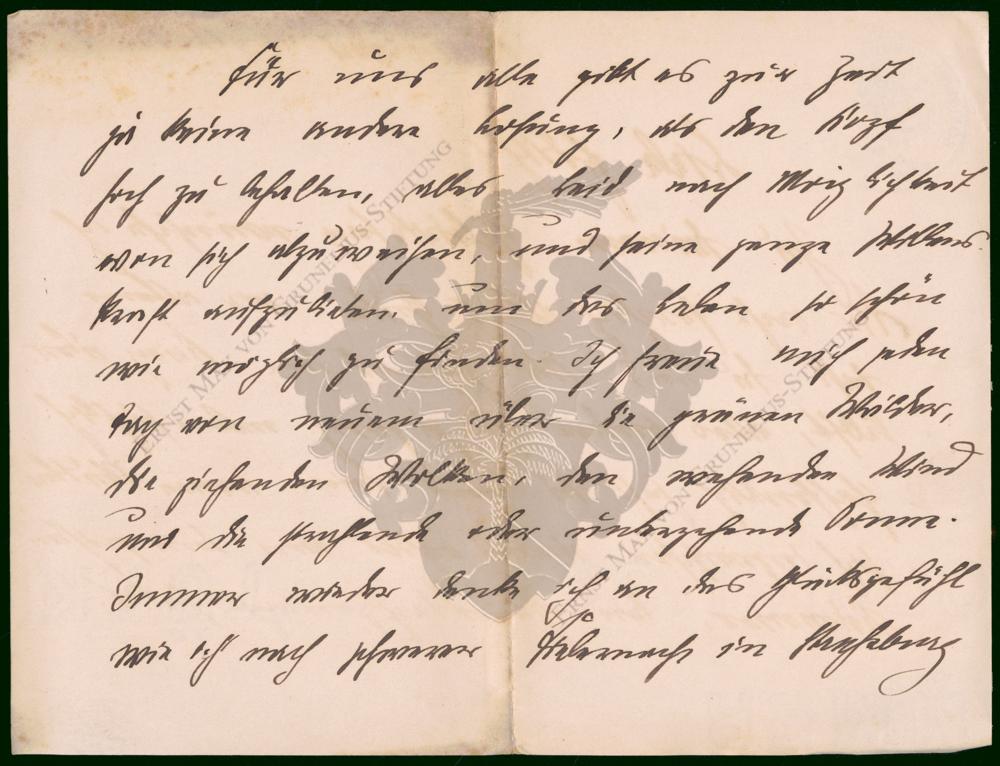 Für uns alle gibt es zur Zeit
ja keine andere Losung, als den Kopf
hoch zu behalten, alles Leid nach Möglichkeit
von sich abzuweisen, und seine ganze Willens-
kraft aufzubieten, um das Leben so schön
wie möglich zu finden. Ich freue mich jeden
Tag von neuem über die grünen Wälder,
die ziehenden Wolken, den wehenden Wind
und die strahlende oder untergehende Sonne.
Immer wieder denke ich an das Glücksgefühl
wie ich nach schwerer Fiebernacht in Straßburg
ERNST MAX VON GRUNELIUS-STIFTUNG
ERNST MAX VON GRUNELIUS-STIFTUNG